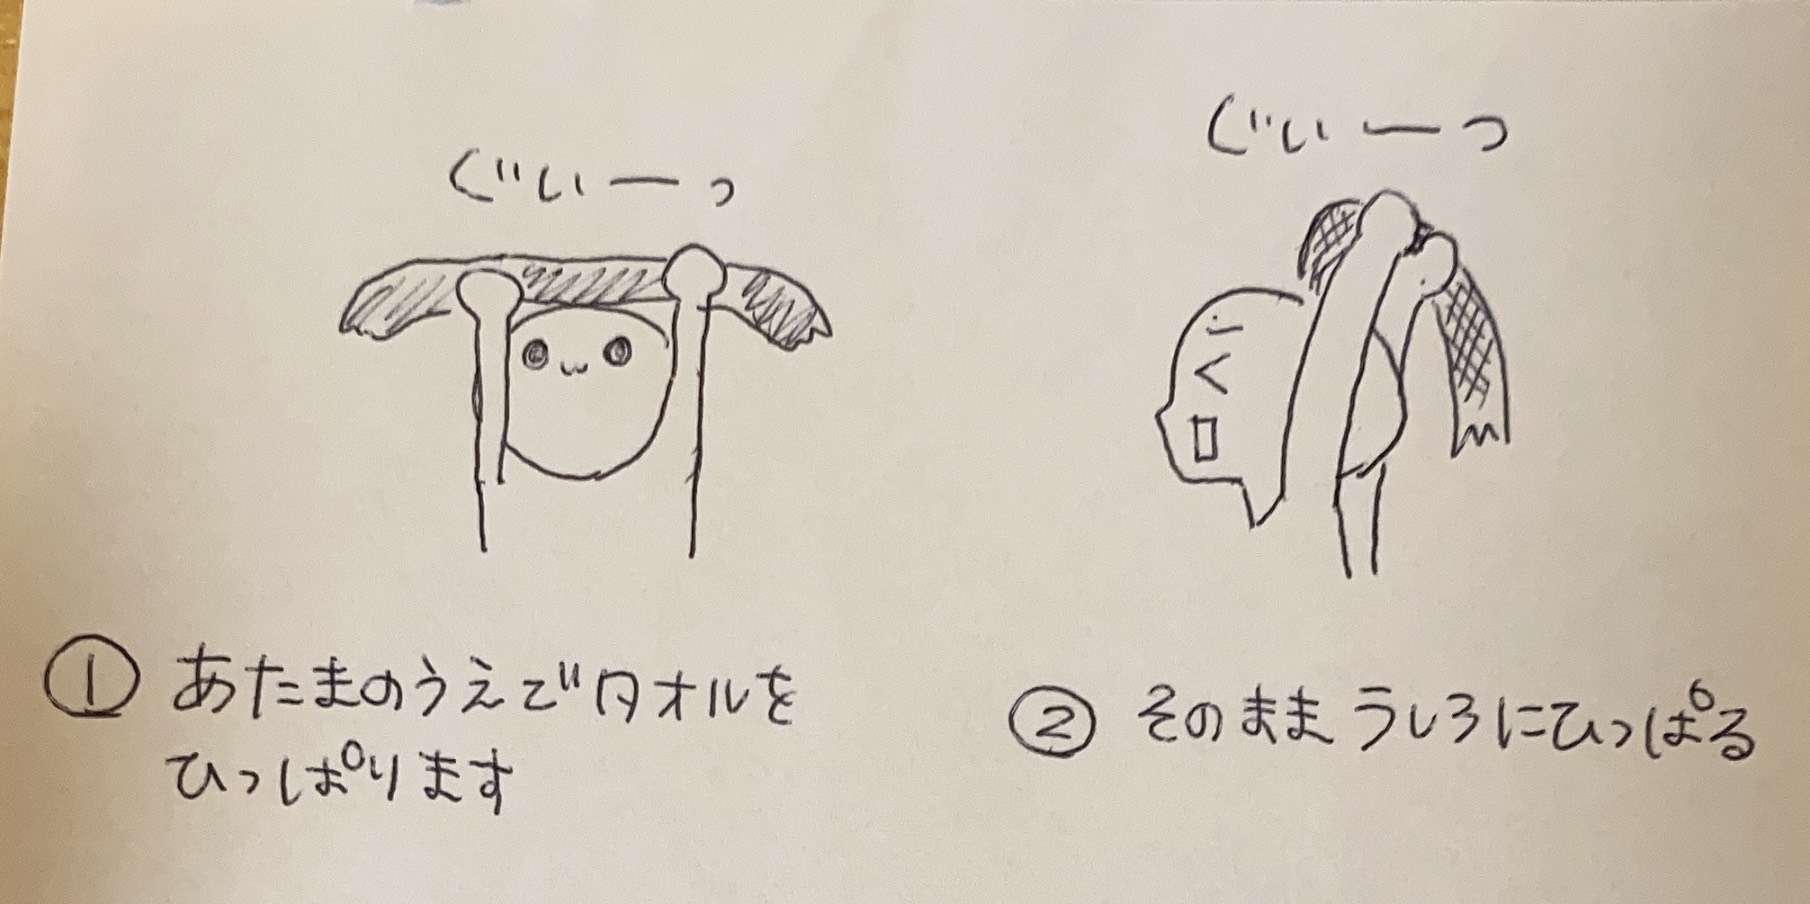 ぐいーっ
ぐいーっ
① あたまのうえでタオルを
ひっぱります
② そのまま うしろにひっぱる